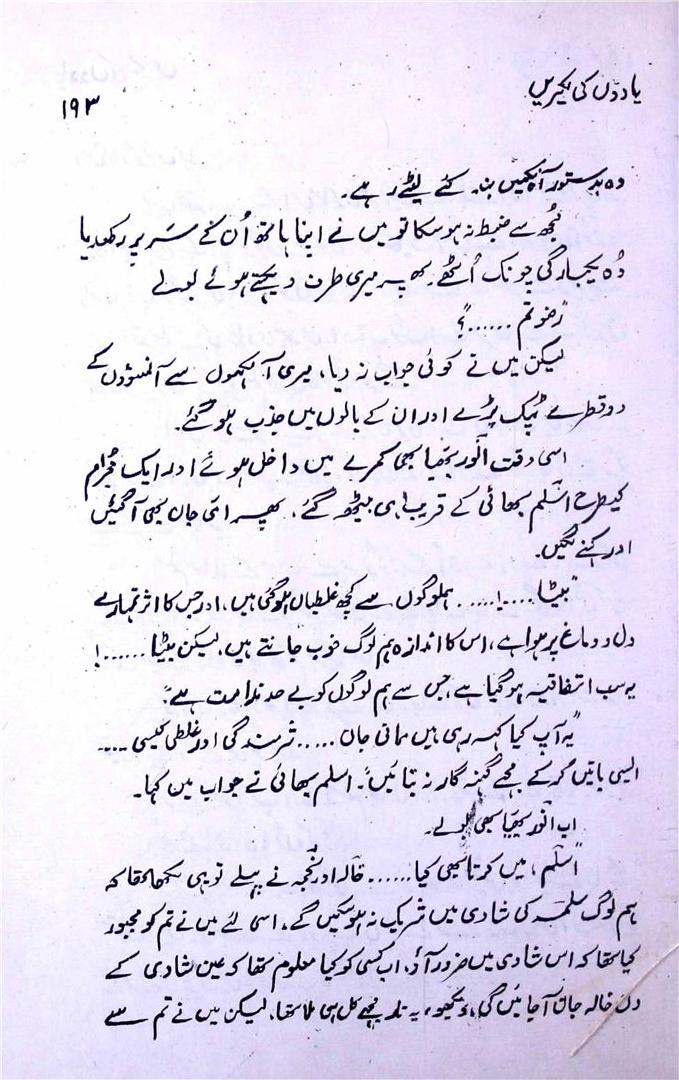 یادوں کی لکیریں
۱۹۳
وہ بدستور آنکھیں بند کئے لیٹے رہے۔
مجھ سے ضبط نہ ہو سکا تو میں نے اپنا ہاتھ اُن کے سَر پر رکھدیا
وُہ یکبارگی چونک اُٹھے۔ پھر میری طرف دیکھتے ہوئے بولے
"رضو تم ......؟"
لیکن میں نے کوئی جواب نہ دیا، میری آنکھوں سے آنسوؤں کے
دو قطرے ٹپک پڑے اور ان کے بالوں میں جذب ہو گئے۔
اسی وقت انور بھیا بھی کمرے میں داخل ہوئے اور ایک مجرم
کیطرح اسلم بھائی کے قریب ہی بیٹھ گئے، پھر امّی جان بھی آگئیں
اور کہنے لگیں۔
"بیٹا ....!..... ہملوگوں سے کچھ غلطیاں ہوگئی ہیں، اور جس کا اثر تمہارے
دل و دماغ پر ہوا ہے، اس کا اندازہ ہم لوگ خوب جانتے ہیں، لیکن بیٹا ......!
یہ سب اتفاقیہ ہو گیا ہے، جس سے ہم لوگوں کو بے حد ندامت ہے"۔
"یہ آپ کیا کہہ رہی ہیں ممانی جان ..... شرمندگی اور غلطی کیسی ....
ایسی باتیں کرکے مجھے گنہ گار نہ بنائیں"۔ اسلم بھائی نے جواب میں کہا۔
اب انور بھیّا بھی بولے۔
"اسلم، میں کرتا بھی کیا ...... خالہ اور نجمہ نے پہلے تو یہی لکھا تھا کہ
ہم لوگ سلمہ کی شادی میں شریک نہ ہو سکیں گے، اسی لئے میں نے تم کو مجبور
کیا تھا کہ اس شادی میں ضرور آؤ، اب کسی کو کیا معلوم تھا کہ عین شادی کے
دن خالہ جان آجائیں گی، دیکھو، یہ تار مجھے کل ہی ملا تھا، لیکن میں نے تم سے